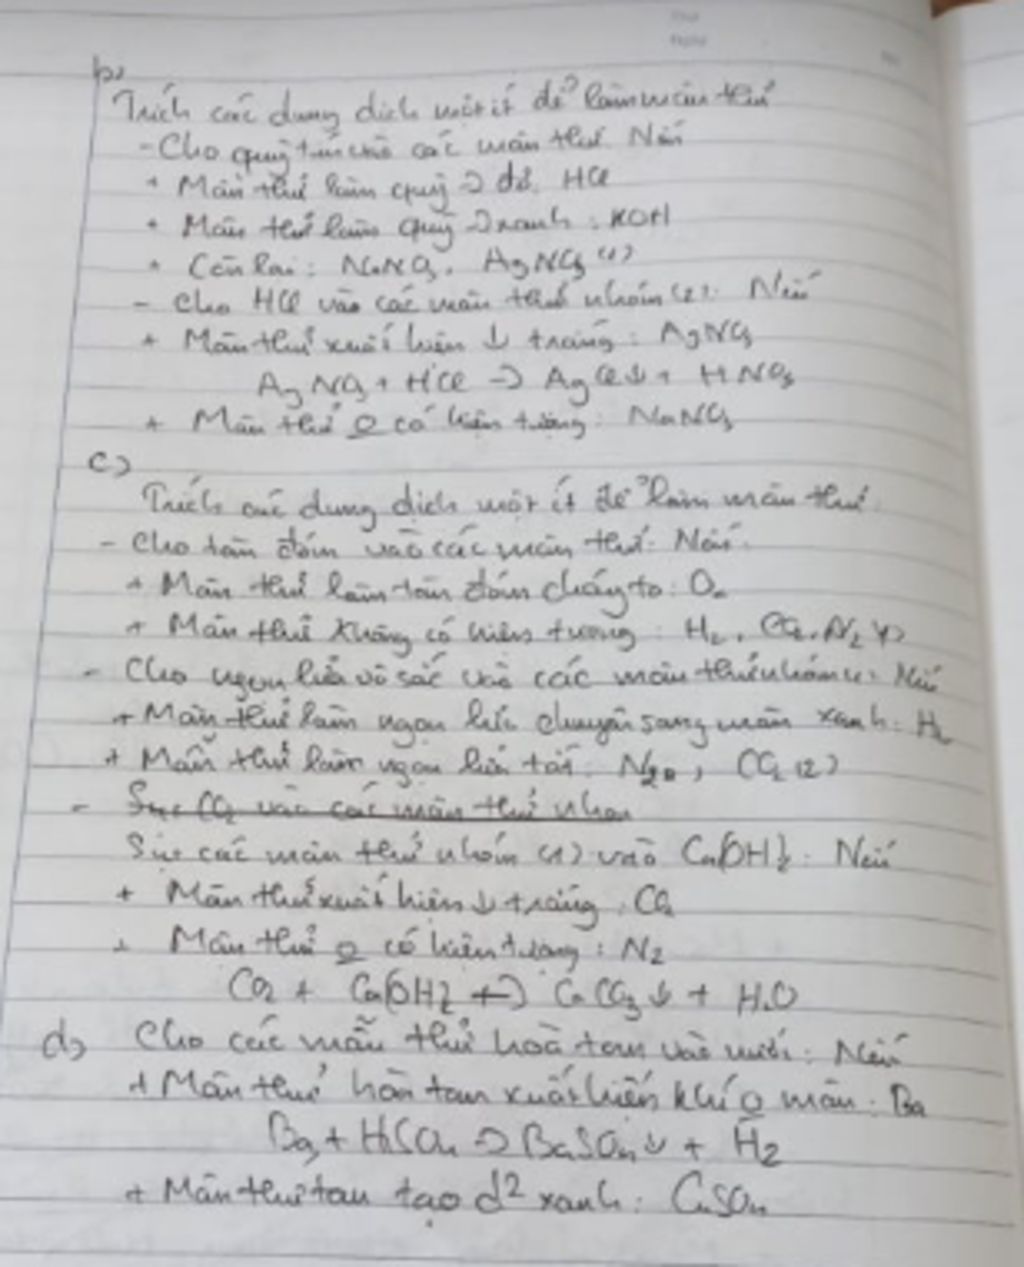 b)
Trích các dung dịch một ít để làm mẫu thử
- Cho quỳ tím vào các mẫu thử. Nếu
+ Mẫu thử làm quỳ → đỏ: HCl
+ Mẫu thử làm quỳ → xanh: KOH
+ Còn lại: NaNO3, AgNO3 (1)
- Cho HCl vào các mẫu thử nhóm (1): Nếu
+ Mẫu thử xuất hiện ↓ trắng: AgNO3
AgNO3 + HCl → AgCl↓ + HNO3
+ Mẫu thử ko có hiện tượng: NaNO3
c)
Trích các dung dịch một ít để làm mẫu thử.
- Cho tàn đóm vào các mẫu thử: Nếu
+ Mẫu thử làm tàn đóm cháy to: O2
+ Mẫu thử không có hiện tượng: H2, CO2, N2 (1)
- Cho ngọn lửa vô sắc vào các mẫu thử nhóm (1): Nếu
+ Mẫu thử làm ngọn lửa chuyển sang màu xanh: H2
+ Mẫu thử làm ngọn lửa tắt: N2, CO2 (2)
- Sục CO2 vào các mẫu thử nhóm
Sục các mẫu thử nhóm (1) vào Ca(OH)2: Nếu
+ Mẫu thử xuất hiện ↓ trắng: CO2
+ Mẫu thử ko có hiện tượng: N2
CO2 + Ca(OH)2 → CaCO3↓ + H2O
d) Cho các mẫu thử hoà tan vào nước: Nếu
+ Mẫu thử hòa tan xuất hiện khí ko màu: Ba
Ba + H2SO4 → BaSO4↓ + H2
+ Mẫu thử tan tạo d² xanh: CuSO4